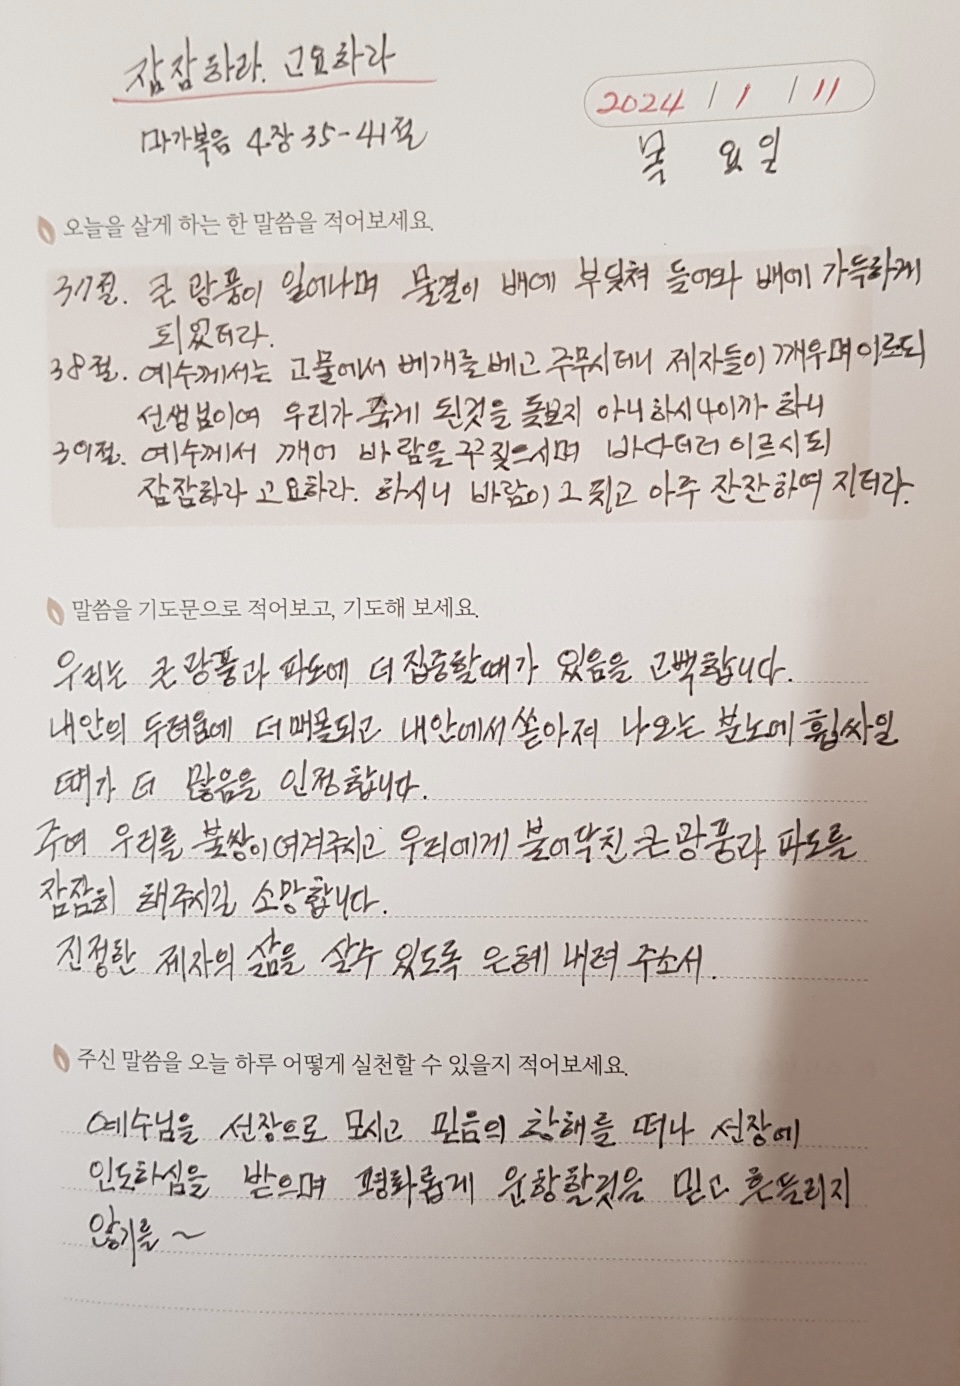 잠잠하라. 고요하라
2024 / 1 / 11
마가복음 4장 35-41절
목 요일
오늘을 살게 하는 한 말씀을 적어보세요.
37절. 큰 광풍이 일어나며 물결이 배에 부딪쳐 들어와 배에 가득하게
되었더라.
38절. 예수께서는 고물에서 베개를 베고 주무시더니 제자들이 깨우며 이르되
선생님이여 우리가 죽게 된것을 돌보지 아니하시나이까 하니
39절. 예수께서 깨어 바람을 꾸짖으시며 바다더러 이르시되
잠잠하라 고요하라. 하시니 바람이 그치고 아주 잔잔하여 지더라.
말씀을 기도문으로 적어보고, 기도해 보세요.
우리는 큰 광풍과 파도에 더 집중할때가 있음을 고백합니다.
내안의 두려움에 더 매몰되고 내안에서 쏟아져 나오는 분노에 휩싸일
때가 더 많음을 인정합니다.
주여 우리를 불쌍이 여겨주시고 우리에게 불어닥친 큰 광풍과 파도를
잠잠히 해주시길 소망합니다.
진정한 제자의 삶을 살수 있도록 은혜 내려 주소서.
주신 말씀을 오늘 하루 어떻게 실천할 수 있을지 적어보세요.
예수님을 선장으로 모시고 믿음의 항해를 떠나 선장에
인도하심을 받으며 평화롭게 운항할것을 믿고 흔들리지
않기를 ~